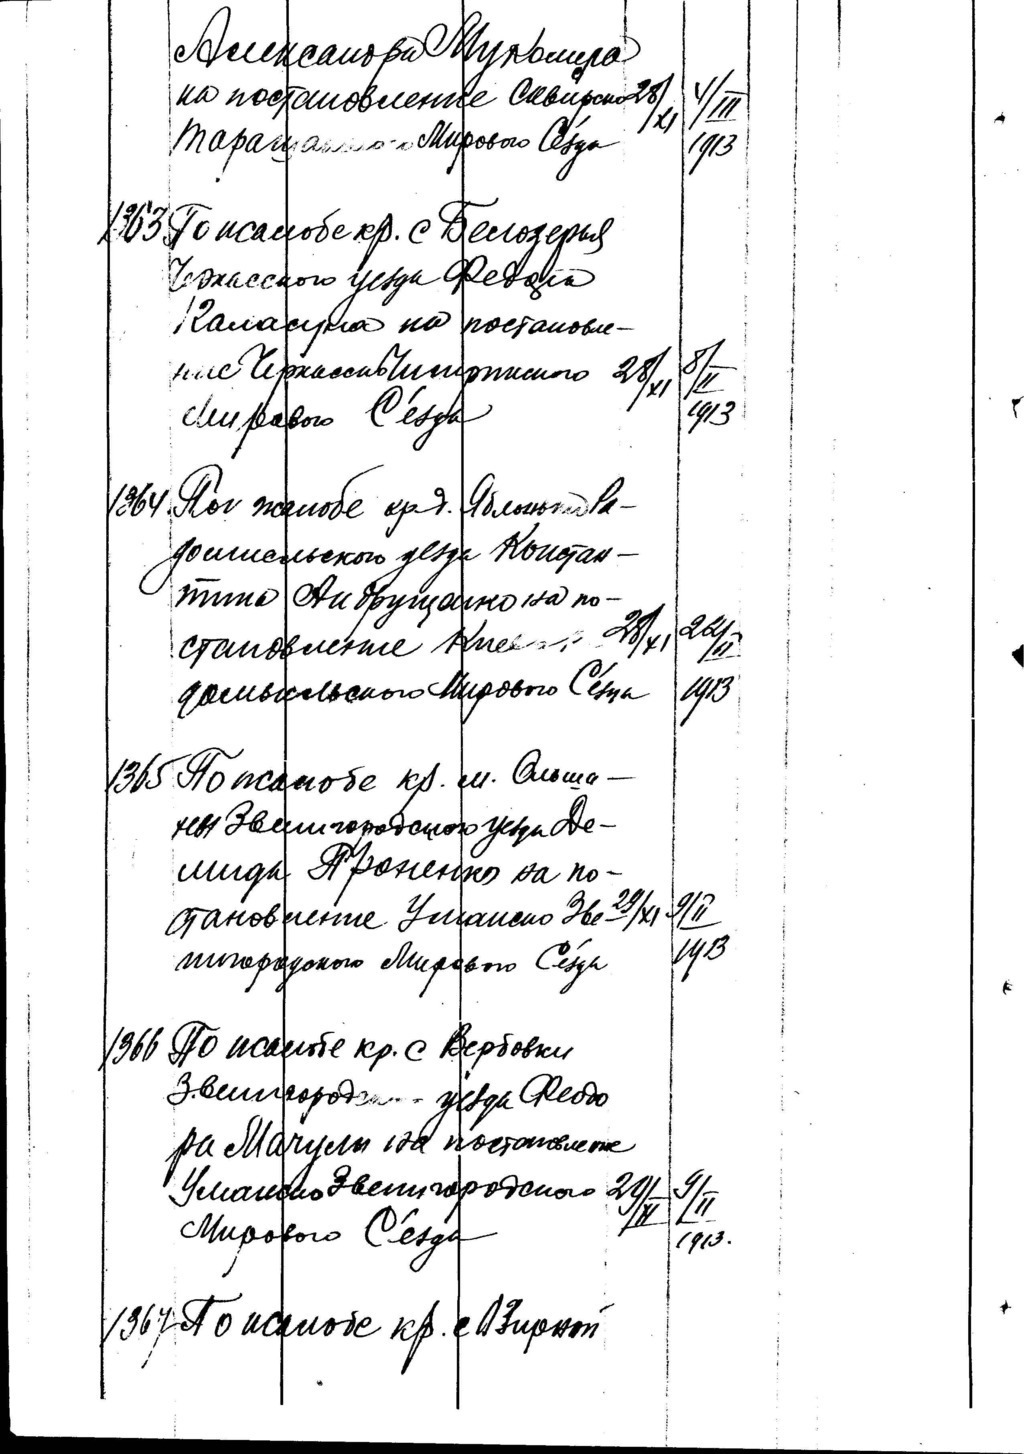 Александра Мукомира
на постановление Сквирско 28/XI 4/III
Таращанского Мирового Съезда 1913
1363 По жалобе кр. с Белозерья
Черкасского уезда Федота
на постановле-
ние Черкасско Чигиринского 28/XI 8/II
Мирового Съезда 1913
1364 По жалобе кр. д. Ра-
домысльского уезда Констан-
тина Андрущенко на по-
становление 28/XI
домысльского Мирового Съезда 1913
1365 По жалобе кр. м. Ольша-
ны Звенигородского уезда Де-
мида Проненко на по-
становление Уманско Зве 29/XI 9/II
нигородского Мирового Съезда 1913
1366 По жалобе кр. с Вербовки
Звенигородского уезда Федо
ра Мачулы на постановление
Уманско Звенигородского 29/XI 9/II
Мирового Съезда 1913.
1367 По жалобе кр. с